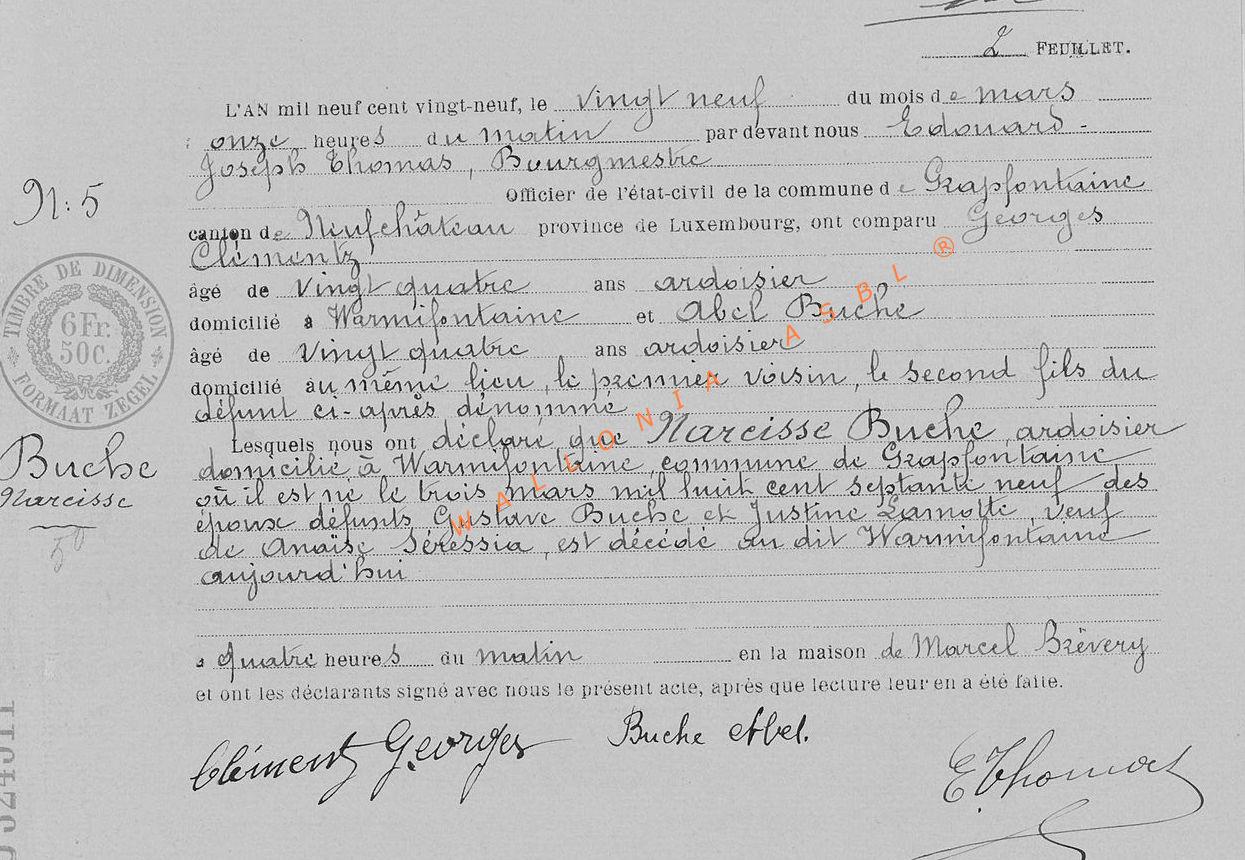 2 FEUILLET.
L'AN mil neuf cent vingt-neuf, le vingt neuf du mois de mars
onze heures du matin par devant nous Edouard-
Joseph Thomas, Bourgmestre
Officier de l'état-civil de la commune de Grapfontaine
N: 5
canton de Neufchâteau province de Luxembourg, ont comparu Georges
Clémentz
âgé de vingt quatre ans ardoisier
domicilié à Warmifontaine et Abel Buche
âgé de vingt quatre ans ardoisier
domicilié au même lieu, le premier voisin, le second fils du
défunt ci-après dénommé
TIMBRE DE DIMENSION
6 Fr.
50c.
FORMAAT ZEGEL
Lesquels nous ont déclaré que Narcisse Buche, ardoisier
domicilié à Warmifontaine, commune de Grapfontaine
où il est né le trois mars mil huit cent septante neuf des
époux défunts Gustave Buche et Justine Lamotte, veuf
de Anaïse Séressia, est décédé au dit Warmifontaine
aujourd'hui
Buche
Narcisse
à quatre heures du matin en la maison de Marcel Brévery
et ont les déclarants signé avec nous le présent acte, après que lecture leur en a été faite.
Clémentz Georges Buche Abel.
E Thomas
WALLONIA ASBL ®